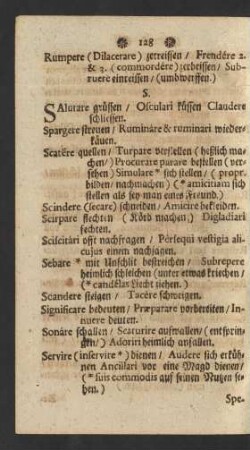 128
Rumpere (Dilacerare) zerreissen / Frendére 2.
& 3. (commordére) zerbeissen / Sub-
ruere einreissen / (umbwerffen.)
S.
SAlutare grüssen / Osculari küssen Claudere
schliessen.
Spargere streuen / Rumináre & ruminari wieder-
käuen.
Scatére quellen / Turpare verstellen (heßlich ma-
chen /) Procurare purare bestellen (ver-
sehen) Simulare * sich stellen / (propr.
bilden / nachmachen) (* amicitiam sich
stellen als sey man eines Freund.)
Scindere (secare) schneiden / Amicire bekleiden.
Scirpare flechten (Körb machen,) Digladiari
fechten.
Sciscitári offt nachfragen / Pérsequi vestigia ali-
cujus einem nachjagen.
Sebare * mit Unschlit bestreichen / Subrepere
heimlich schleichen (unter etwas kriechen /
(* candelas Liecht ziehen.)
Scandere steigen / Tacére schweigen.
Significare bedeuten / Præparare vorbereiten / In-
nuere deuten.
Sonáre schallen / Scaturire aufwallen / (entsprin-
gen /) Adoriri heimlich anfallen.
Servire (inservire *) dienen / Audere sich erküh-
nen Ancillari vor eine Magd dienen /
(* suis commodis auf seinen Nutzen se-
hen.)
Spe-